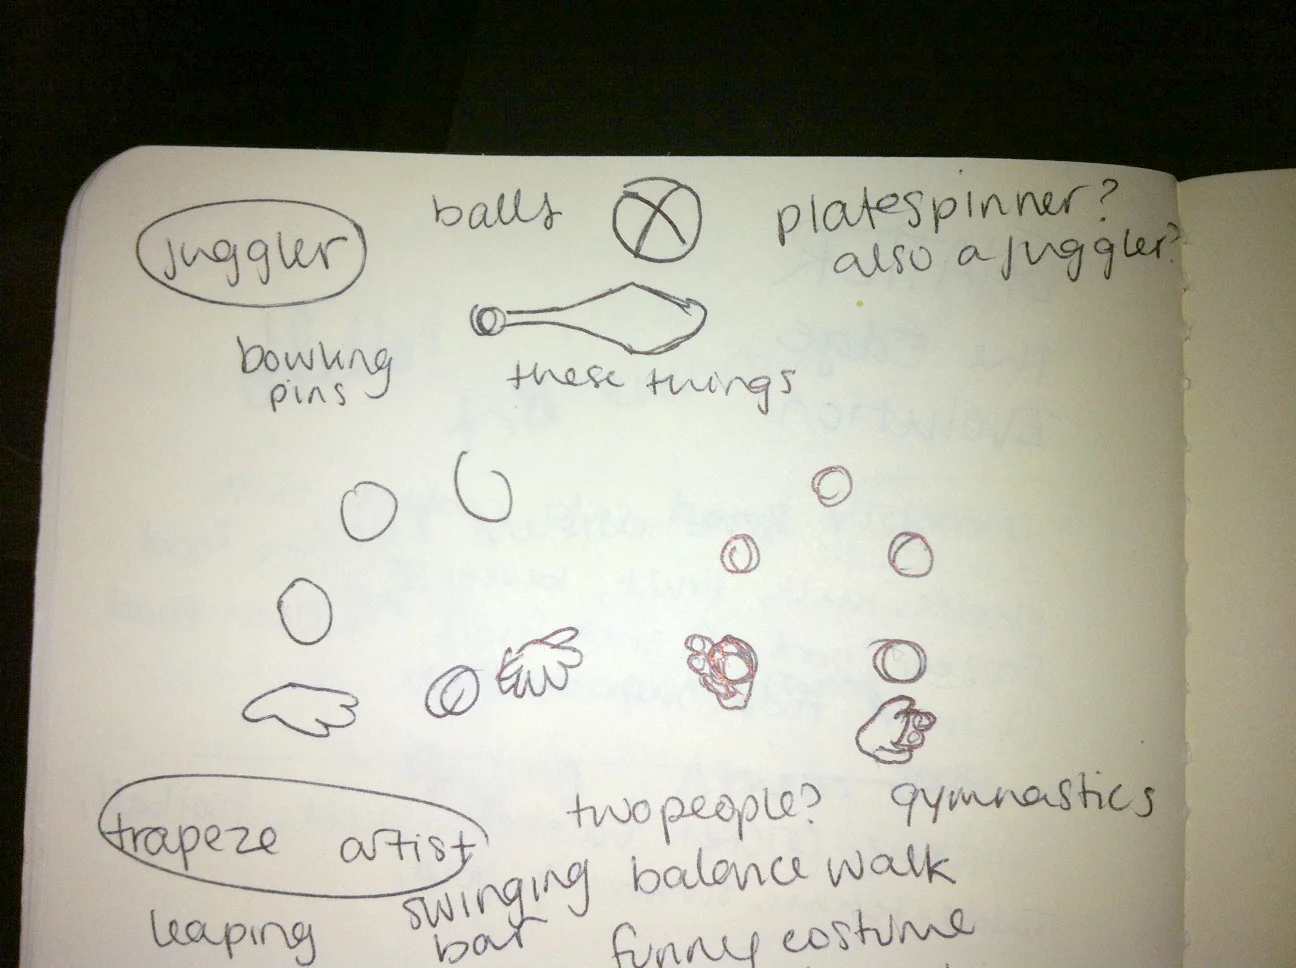 juggler
balls
platespinner?
also a juggler?
bowling
pins
these things
trapeze artist
two people?
gymnastics
swinging
bar
balance walk
leaping
funny costume